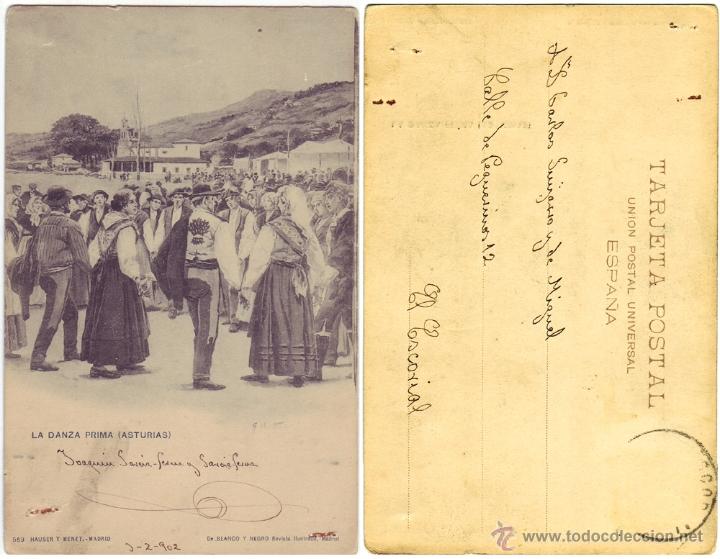 LA DANZA PRIMA (ASTURIAS)
Joaquín García-
569 HAUSER Y MENET.-MADRID
De BLANCO Y NEGRO Revista Ilustrada, Madrid
3-2-902
TARJETA POSTAL
UNION POSTAL UNIVERSAL
ESPAÑA
Carlos y de Miguel
Calle de Peguerinos 12
El Escorial
www.todocoleccion.net